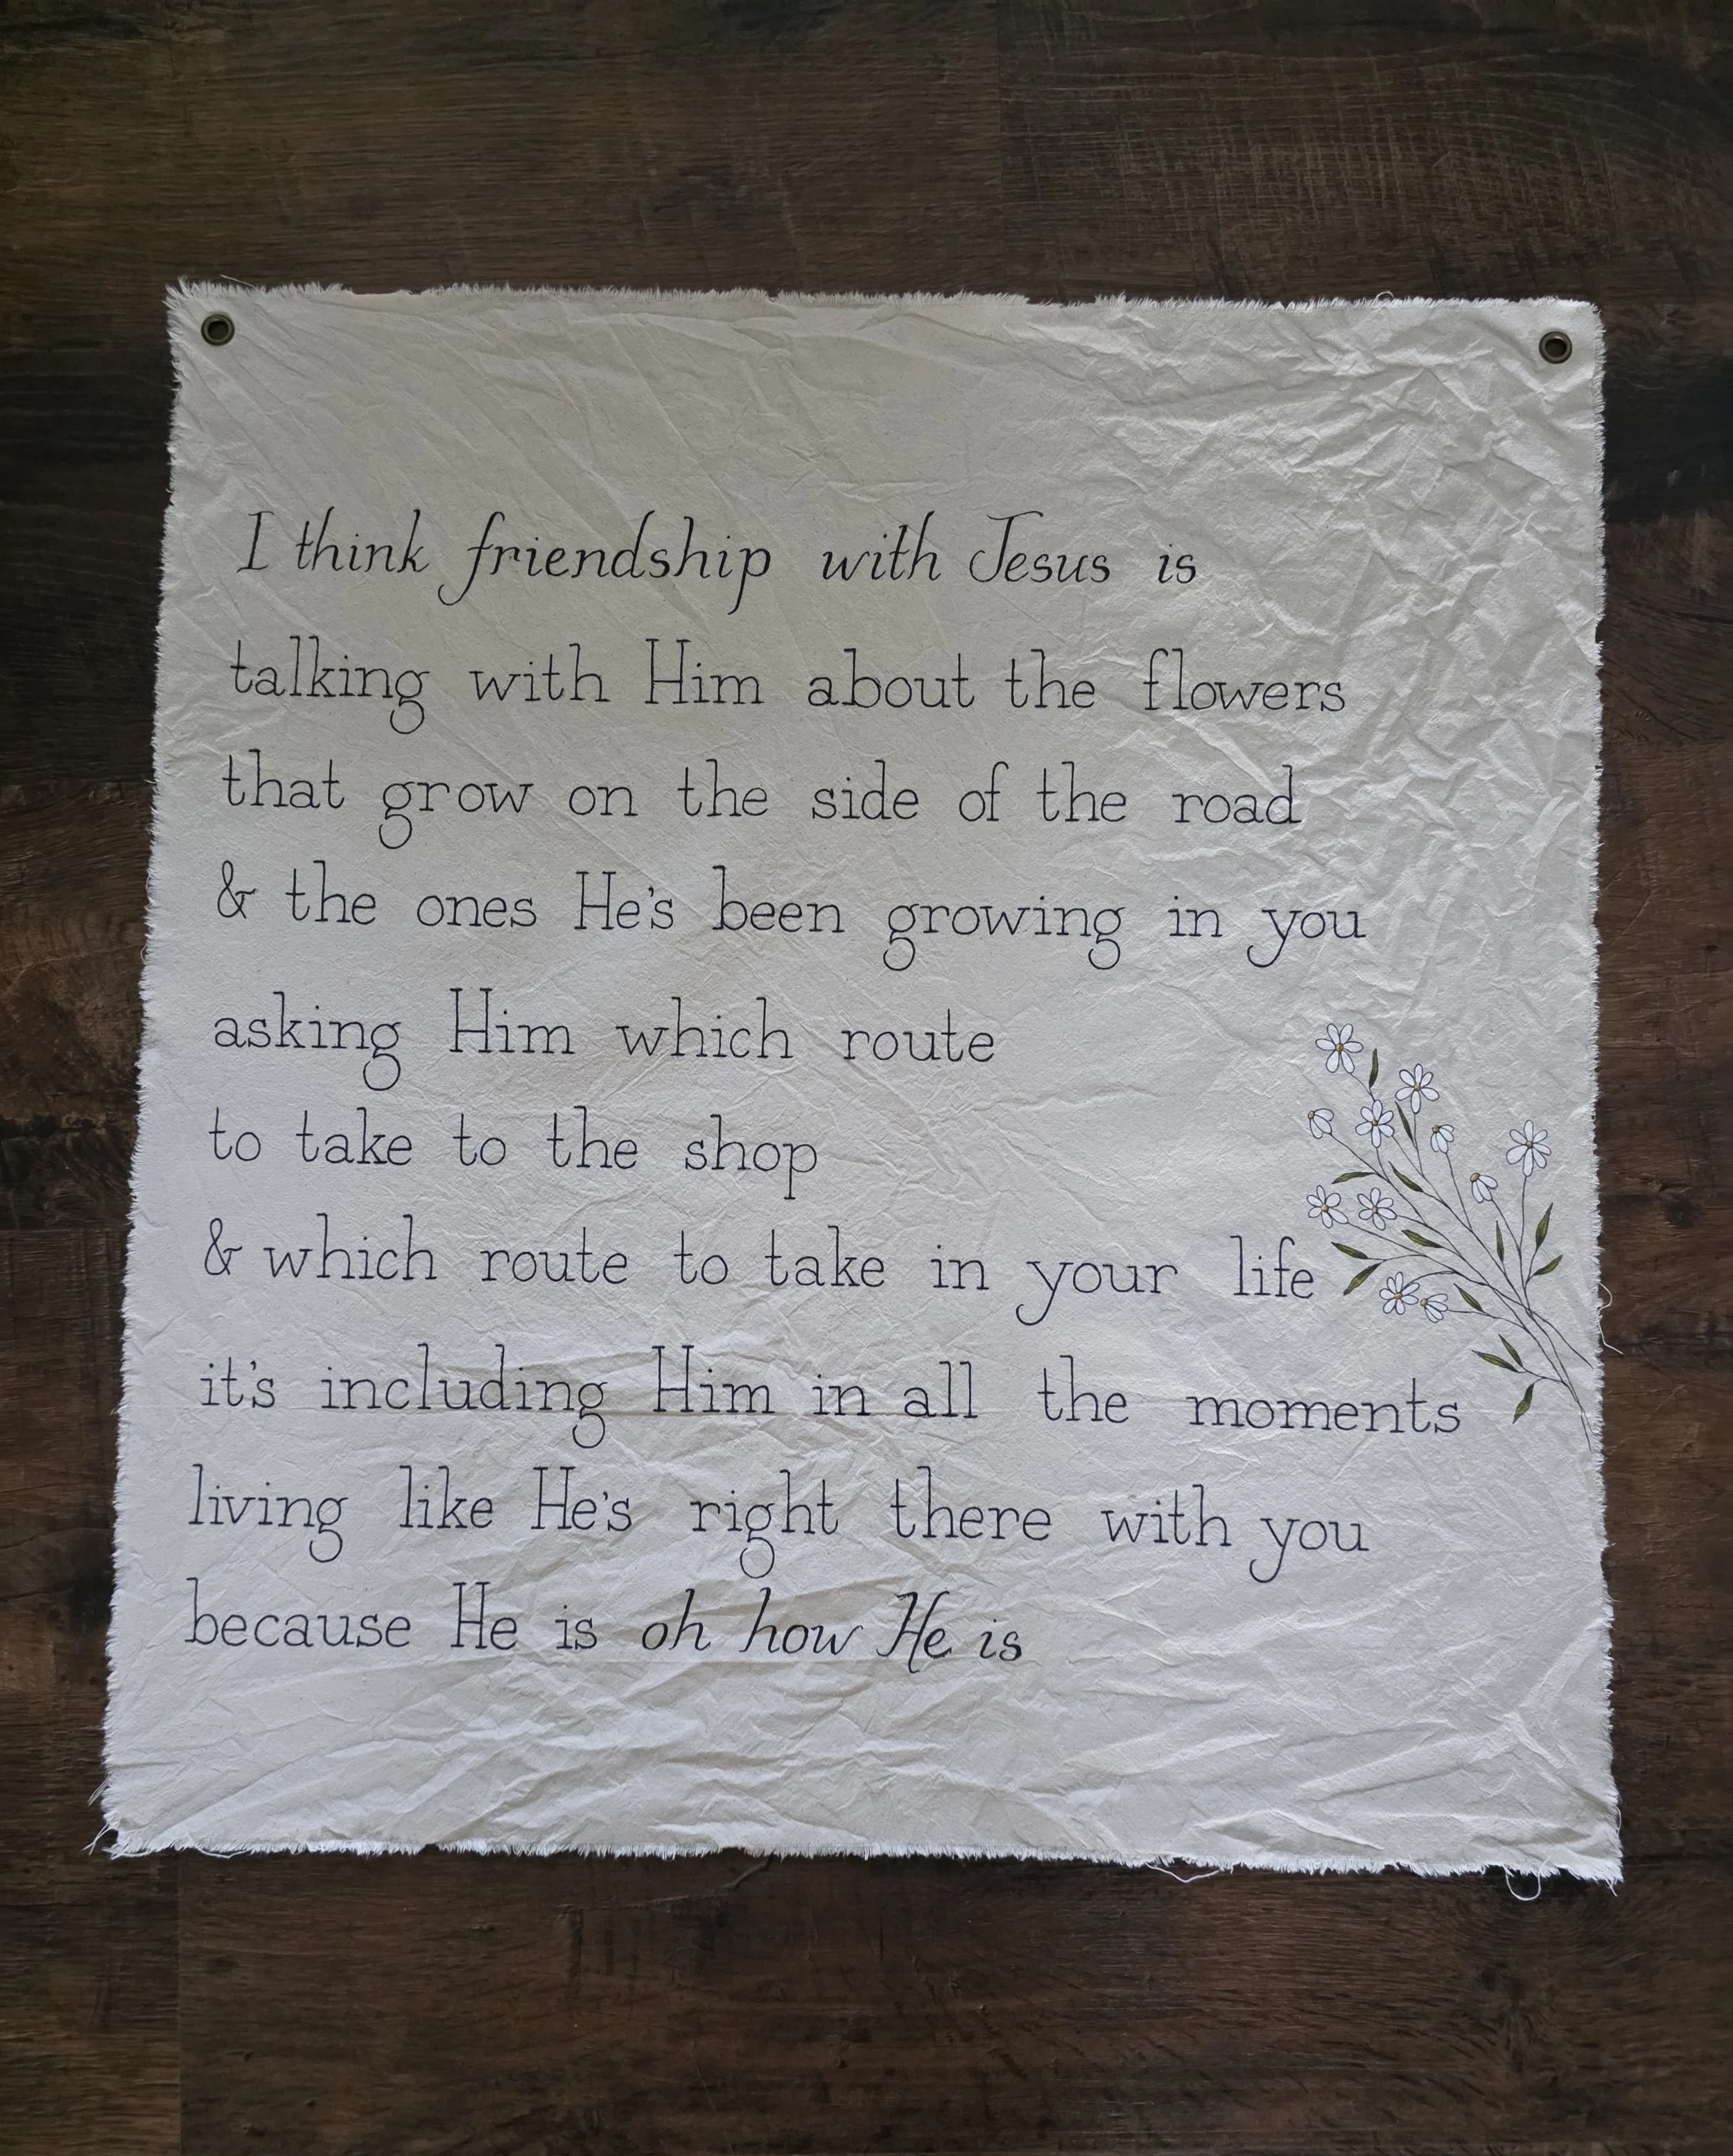 I think friendship with Jesus is
talking with Him about the flowers
that grow on the side of the road
& the ones He's been growing in you
asking Him which route
to take to the shop
& which route to take in your life
it's including Him in all the moments
living like He's right there with you
because He is oh how He is